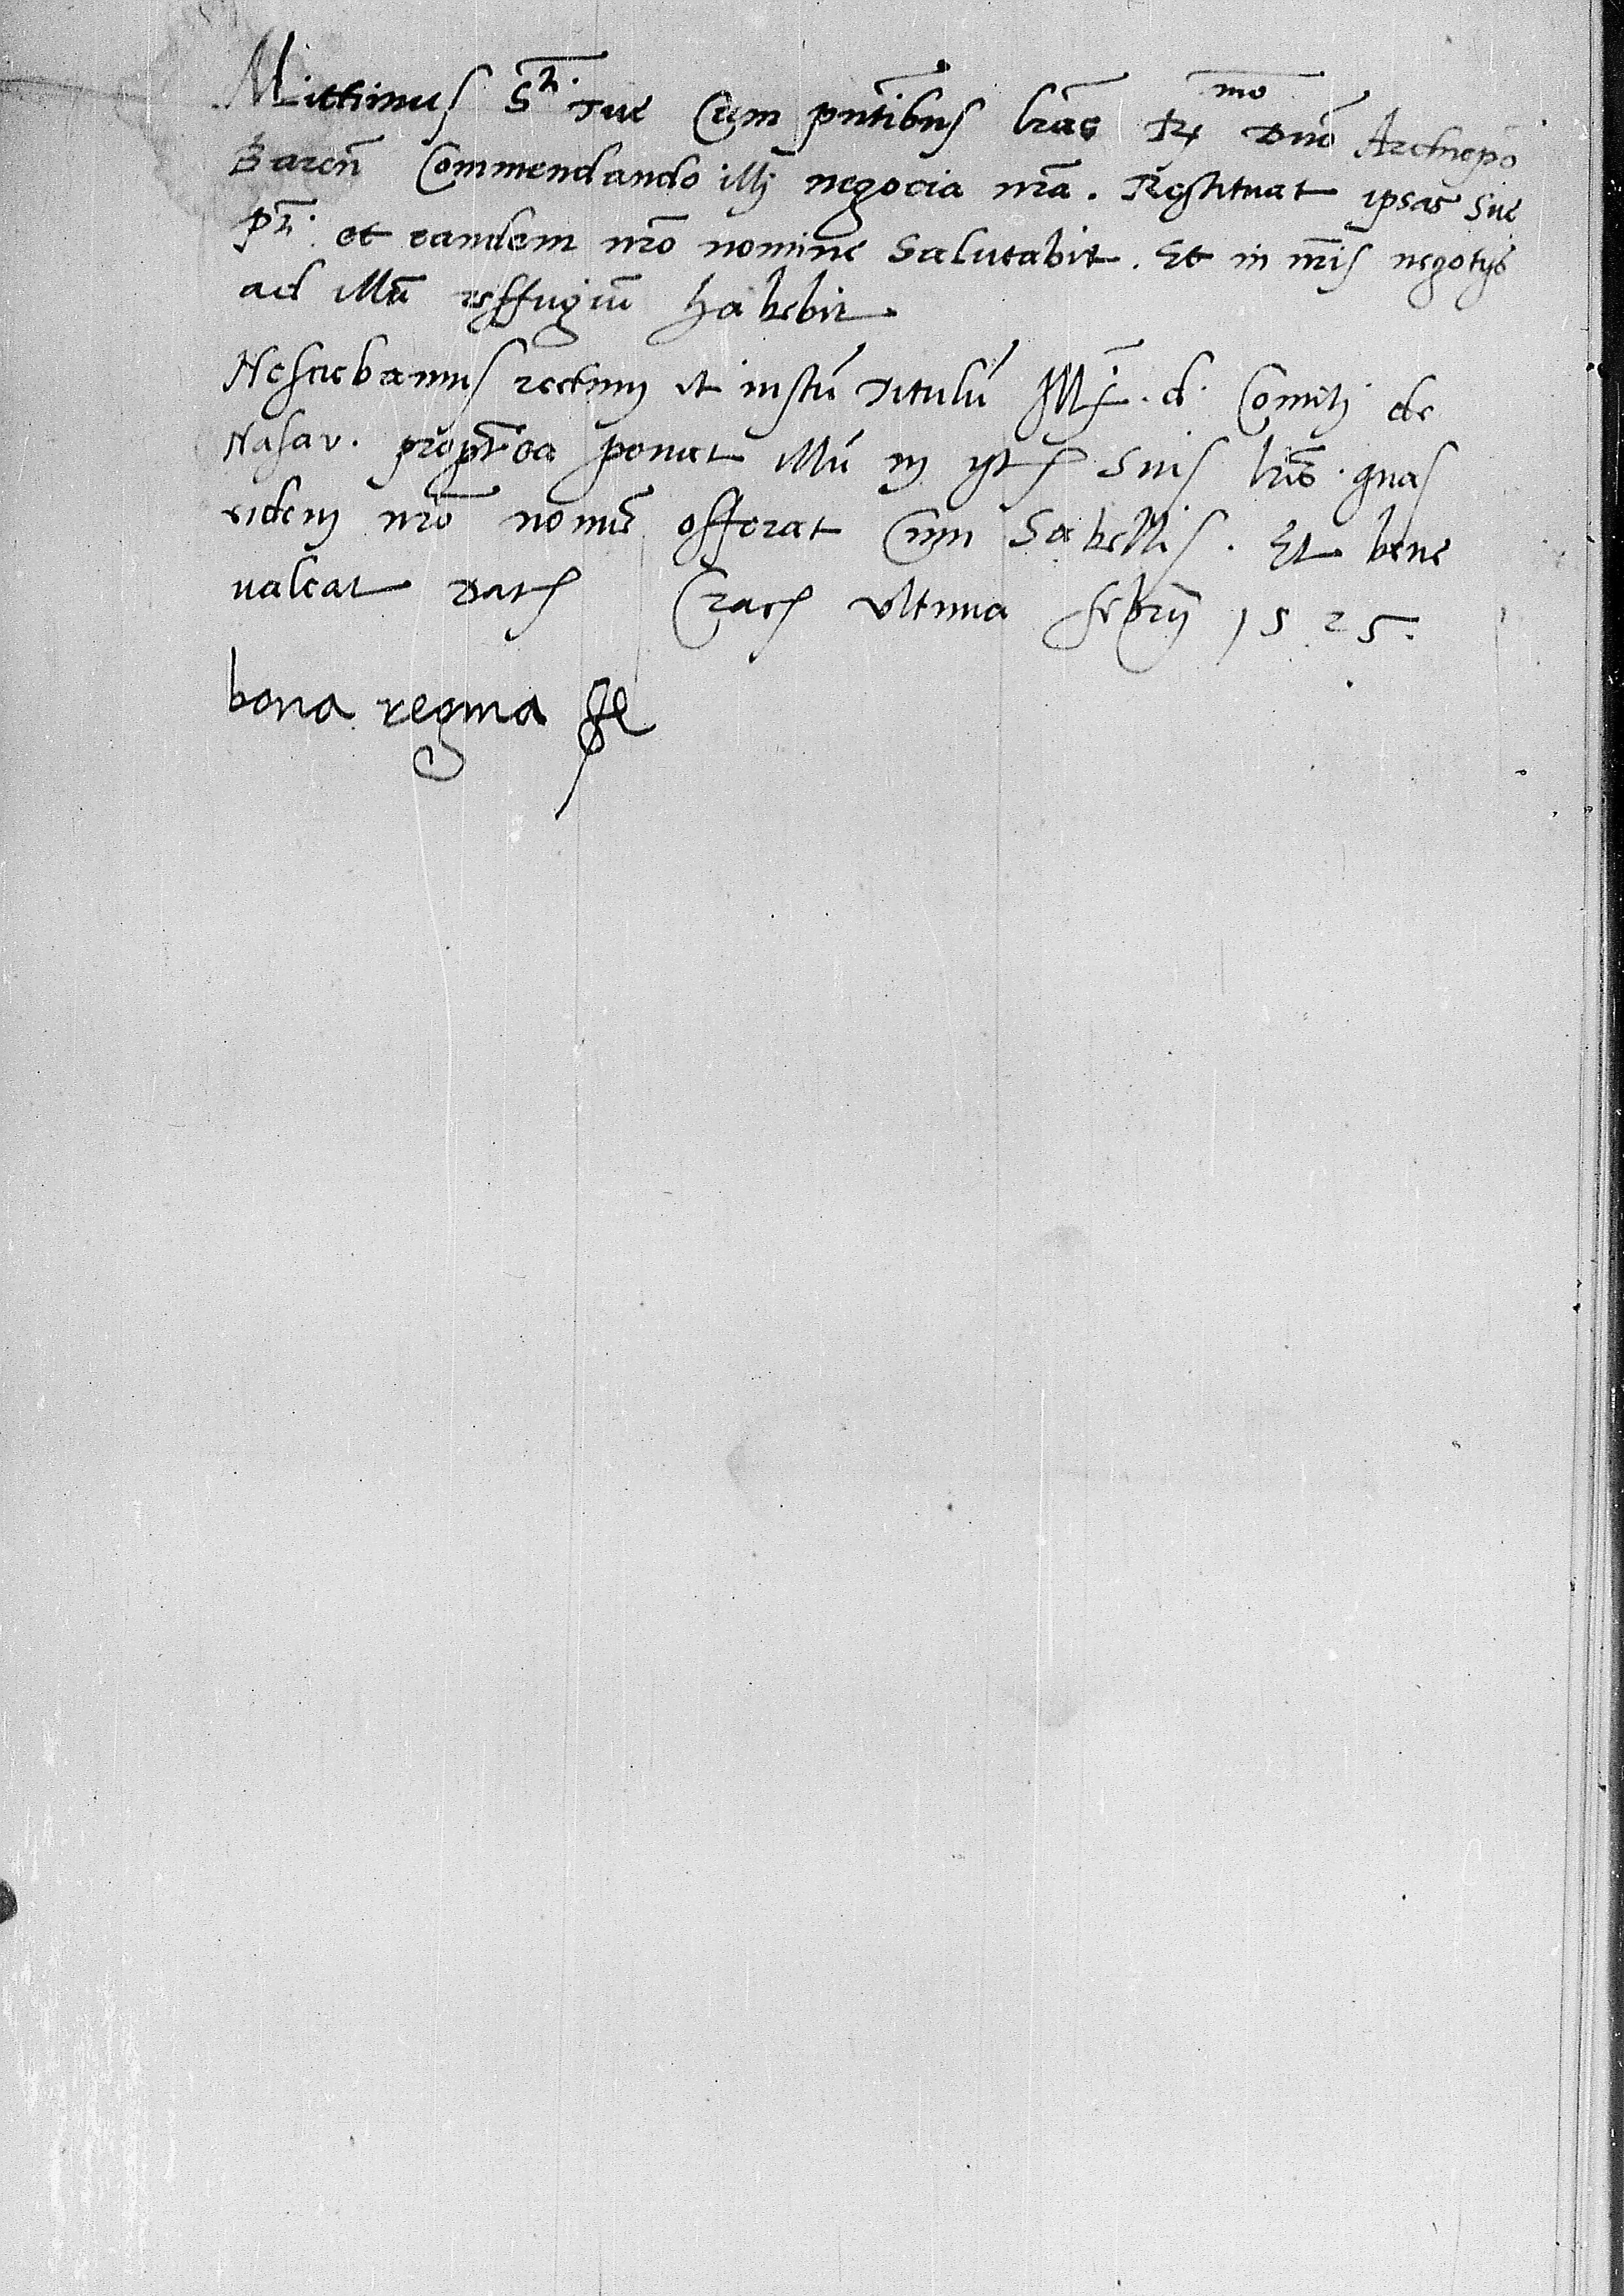 Mittimus S^ti. Tue Cum pñtibus lr̃as R^mo Dño Archiep̃o
Bareñ Commendando illi negocia nr̃a. Restituat ipsas Sue
P^ti. et eandem nr̃o nomine Salutabit. Et in nr̃is negotijs
ad illũ reffugiũ habebit
Nesciebamus rectum et iustũ titulũ Ill. d. Comitis de
Nasav. propterea ponat illũ in Suis lr̃is. quas
eidem nr̃o nomĩe offerat Cum Sabellis. Et bene
valeat Dat Crac ultima febrij 1525.
bona regina